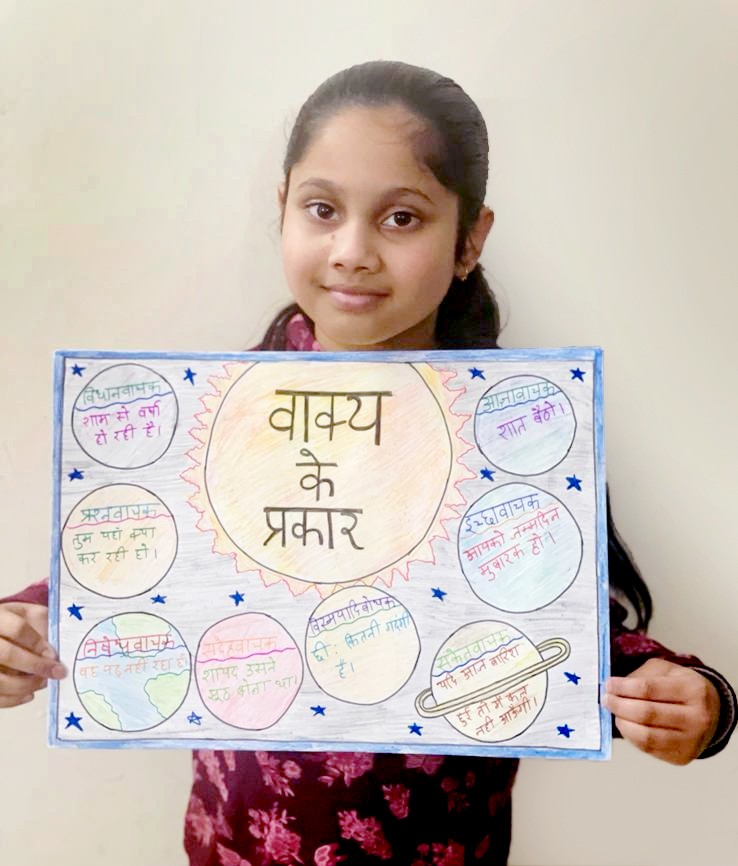 वाक्य
के
प्रकार
विधानवाचक
शाम से वर्फ
हो रही है।
आज्ञावाचक
शांत बैठो।
प्रश्नवाचक
तुम यहाँ क्या
कर रही हो।
इच्छावाचक
आपको जन्मदिन
मुबारक हो।
निषेधवाचक
वह पढ़ नहीं रहा है।
संदेहवाचक
शायद उसने
झूठ बोला था।
विस्मयादिबोधक
छी: कितनी गंदगी
है।
संकेतवाचक
यदि आज बारिश
हुई तो मैं कल
नहीं आऊँगी।